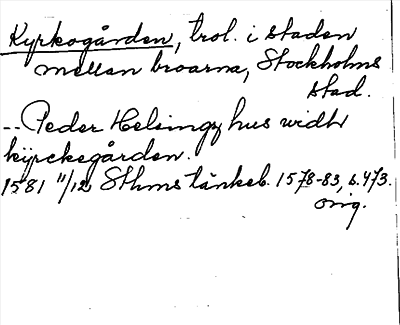 Kyrkogården, trol. i staden
mellan broarna, Stockholms
stad.
-- Peder Helsings hus widh
kyrckegården.
1581 11/12 Sthms tänkeb. 1578-83, s. 473.
orig.